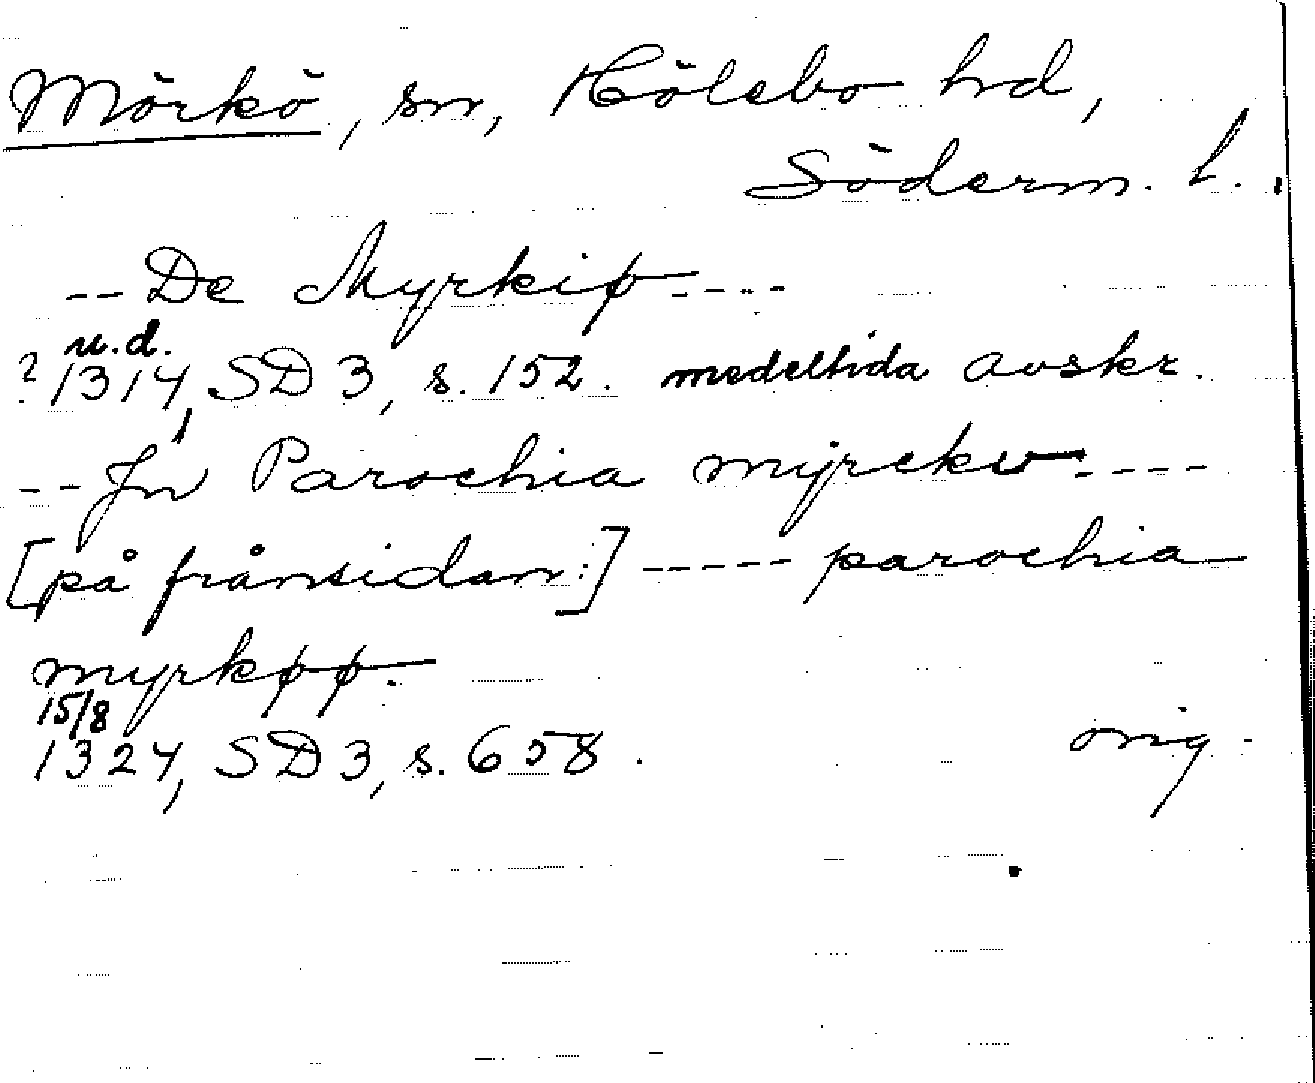 Mörkö, sn, Hölebo hrd,
Söderm. l.
-- De Myrkiø ----
u.d.
? 1314, SD 3, s. 152. medeltida avskr.
-- Jn Parochia myrckv ----
[på frånsidan:] ----- parochia
myrkøø.
15/8
1324, SD 3, s. 658. orig.